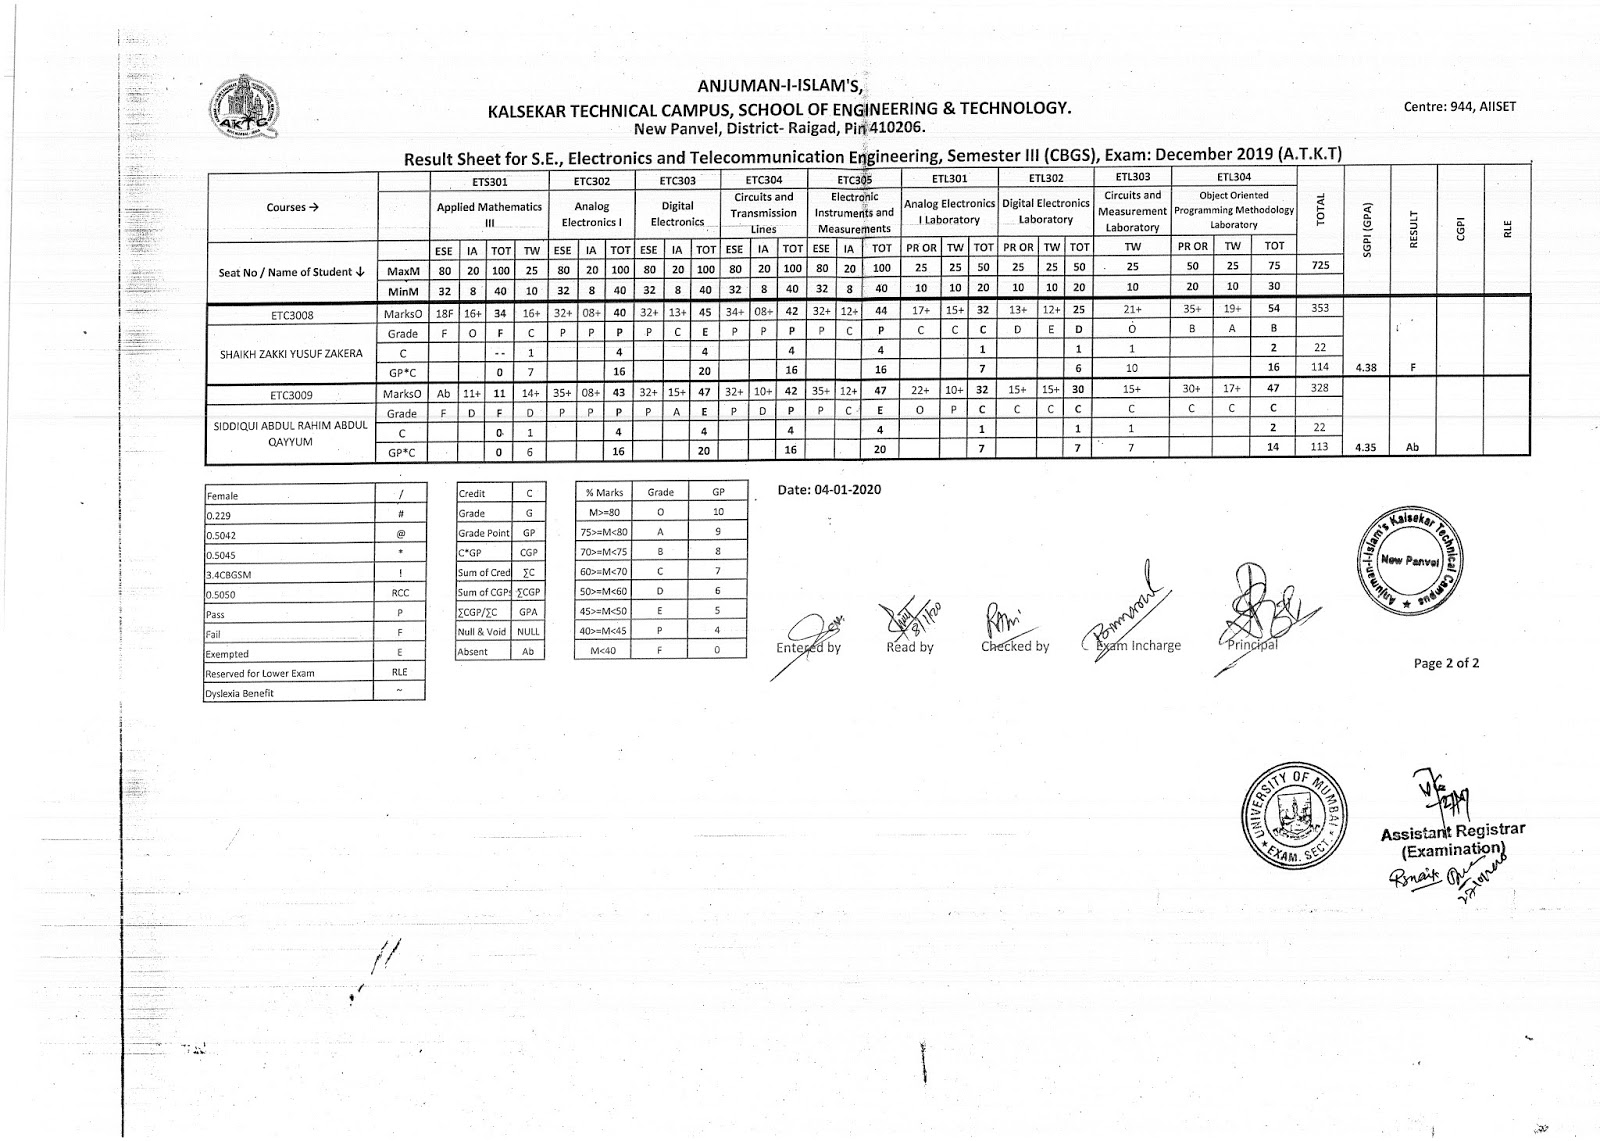 ANJUMAN-I-ISLAM'S,
KALSEKAR TECHNICAL CAMPUS, SCHOOL OF ENGINEERING & TECHNOLOGY.
New Panvel, District- Raigad, Pin 410206.
Centre: 944, AIISET
AKTC
Result Sheet for S.E., Electronics and Telecommunication Engineering, Semester III (CBGS), Exam: December 2019 (A.T.K.T)
ETS301 ETC302 ETC303 ETC304 ETC305 ETL301 ETL302 ETL303 ETL304
Courses → Applied Mathematics III Analog Electronics I Digital Electronics Circuits and Transmission Lines Electronic Instruments and Measurements Analog Electronics I Laboratory Digital Electronics Laboratory Circuits and Measurement Laboratory Object Oriented Programming Methodology Laboratory TOTAL SGPI (GPA) RESULT CGPI RLE
ESE IA TOT TW ESE IA TOT ESE IA TOT ESE IA TOT ESE IA TOT PR OR TW TOT PR OR TW TOT TW PR OR TW TOT
Seat No / Name of Student ↓ MaxM 80 20 100 25 80 20 100 80 20 100 80 20 100 80 20 100 25 25 50 25 25 50 25 50 25 75 725
MinM 32 8 40 10 32 8 40 32 8 40 32 8 40 32 8 40 10 10 20 10 10 20 10 20 10 30
ETC3008 MarksO 18F 16+ 34 16+ 32+ 08+ 40 32+ 13+ 45 34+ 08+ 42 32+ 12+ 44 17+ 15+ 32 13+ 12+ 25 21+ 35+ 19+ 54 353
Grade F O F C P P P P C E P P P P C P C C C D E D O B A B
SHAIKH ZAKKI YUSUF ZAKERA C -- 1 4 4 4 4 1 1 1 2 22
GP*C 0 7 16 20 16 16 7 6 10 16 114 4.38 F
ETC3009 MarksO Ab 11+ 11 14+ 35+ 08+ 43 32+ 15+ 47 32+ 10+ 42 35+ 12+ 47 22+ 10+ 32 15+ 15+ 30 15+ 30+ 17+ 47 328
Grade F D F D P P P P A E P D P P C E O P C C C C C C C C
SIDDIQUI ABDUL RAHIM ABDUL QAYYUM C 0 1 4 4 4 4 1 1 1 2 22
GP*C 0 6 16 20 16 20 7 7 7 14 113 4.35 Ab
Female /
0.229 #
0.5042 @
0.5045 *
3.4CBGSM !
0.5050 RCC
Pass P
Fail F
Exempted E
Reserved for Lower Exam RLE
Dyslexia Benefit ~
Credit C
Grade G
Grade Point GP
C*GP CGP
Sum of Cred ∑C
Sum of CGPs ∑CGP
∑CGP/∑C GPA
Null & Void NULL
Absent Ab
% Marks Grade GP
M>=80 O 10
75>=M<80 A 9
70>=M<75 B 8
60>=M<70 C 7
50>=M<60 D 6
45>=M<50 E 5
40>=M<45 P 4
M<40 F 0
Date: 04-01-2020
8/1/20
Entered by Read by Checked by Exam Incharge Principal
Anjuman-I-Islam's Kalsekar Technical Campus
New Panvel
Page 2 of 2
UNIVERSITY OF MUMBAI
EXAM. SECT.
Assistant Registrar
(Examination)